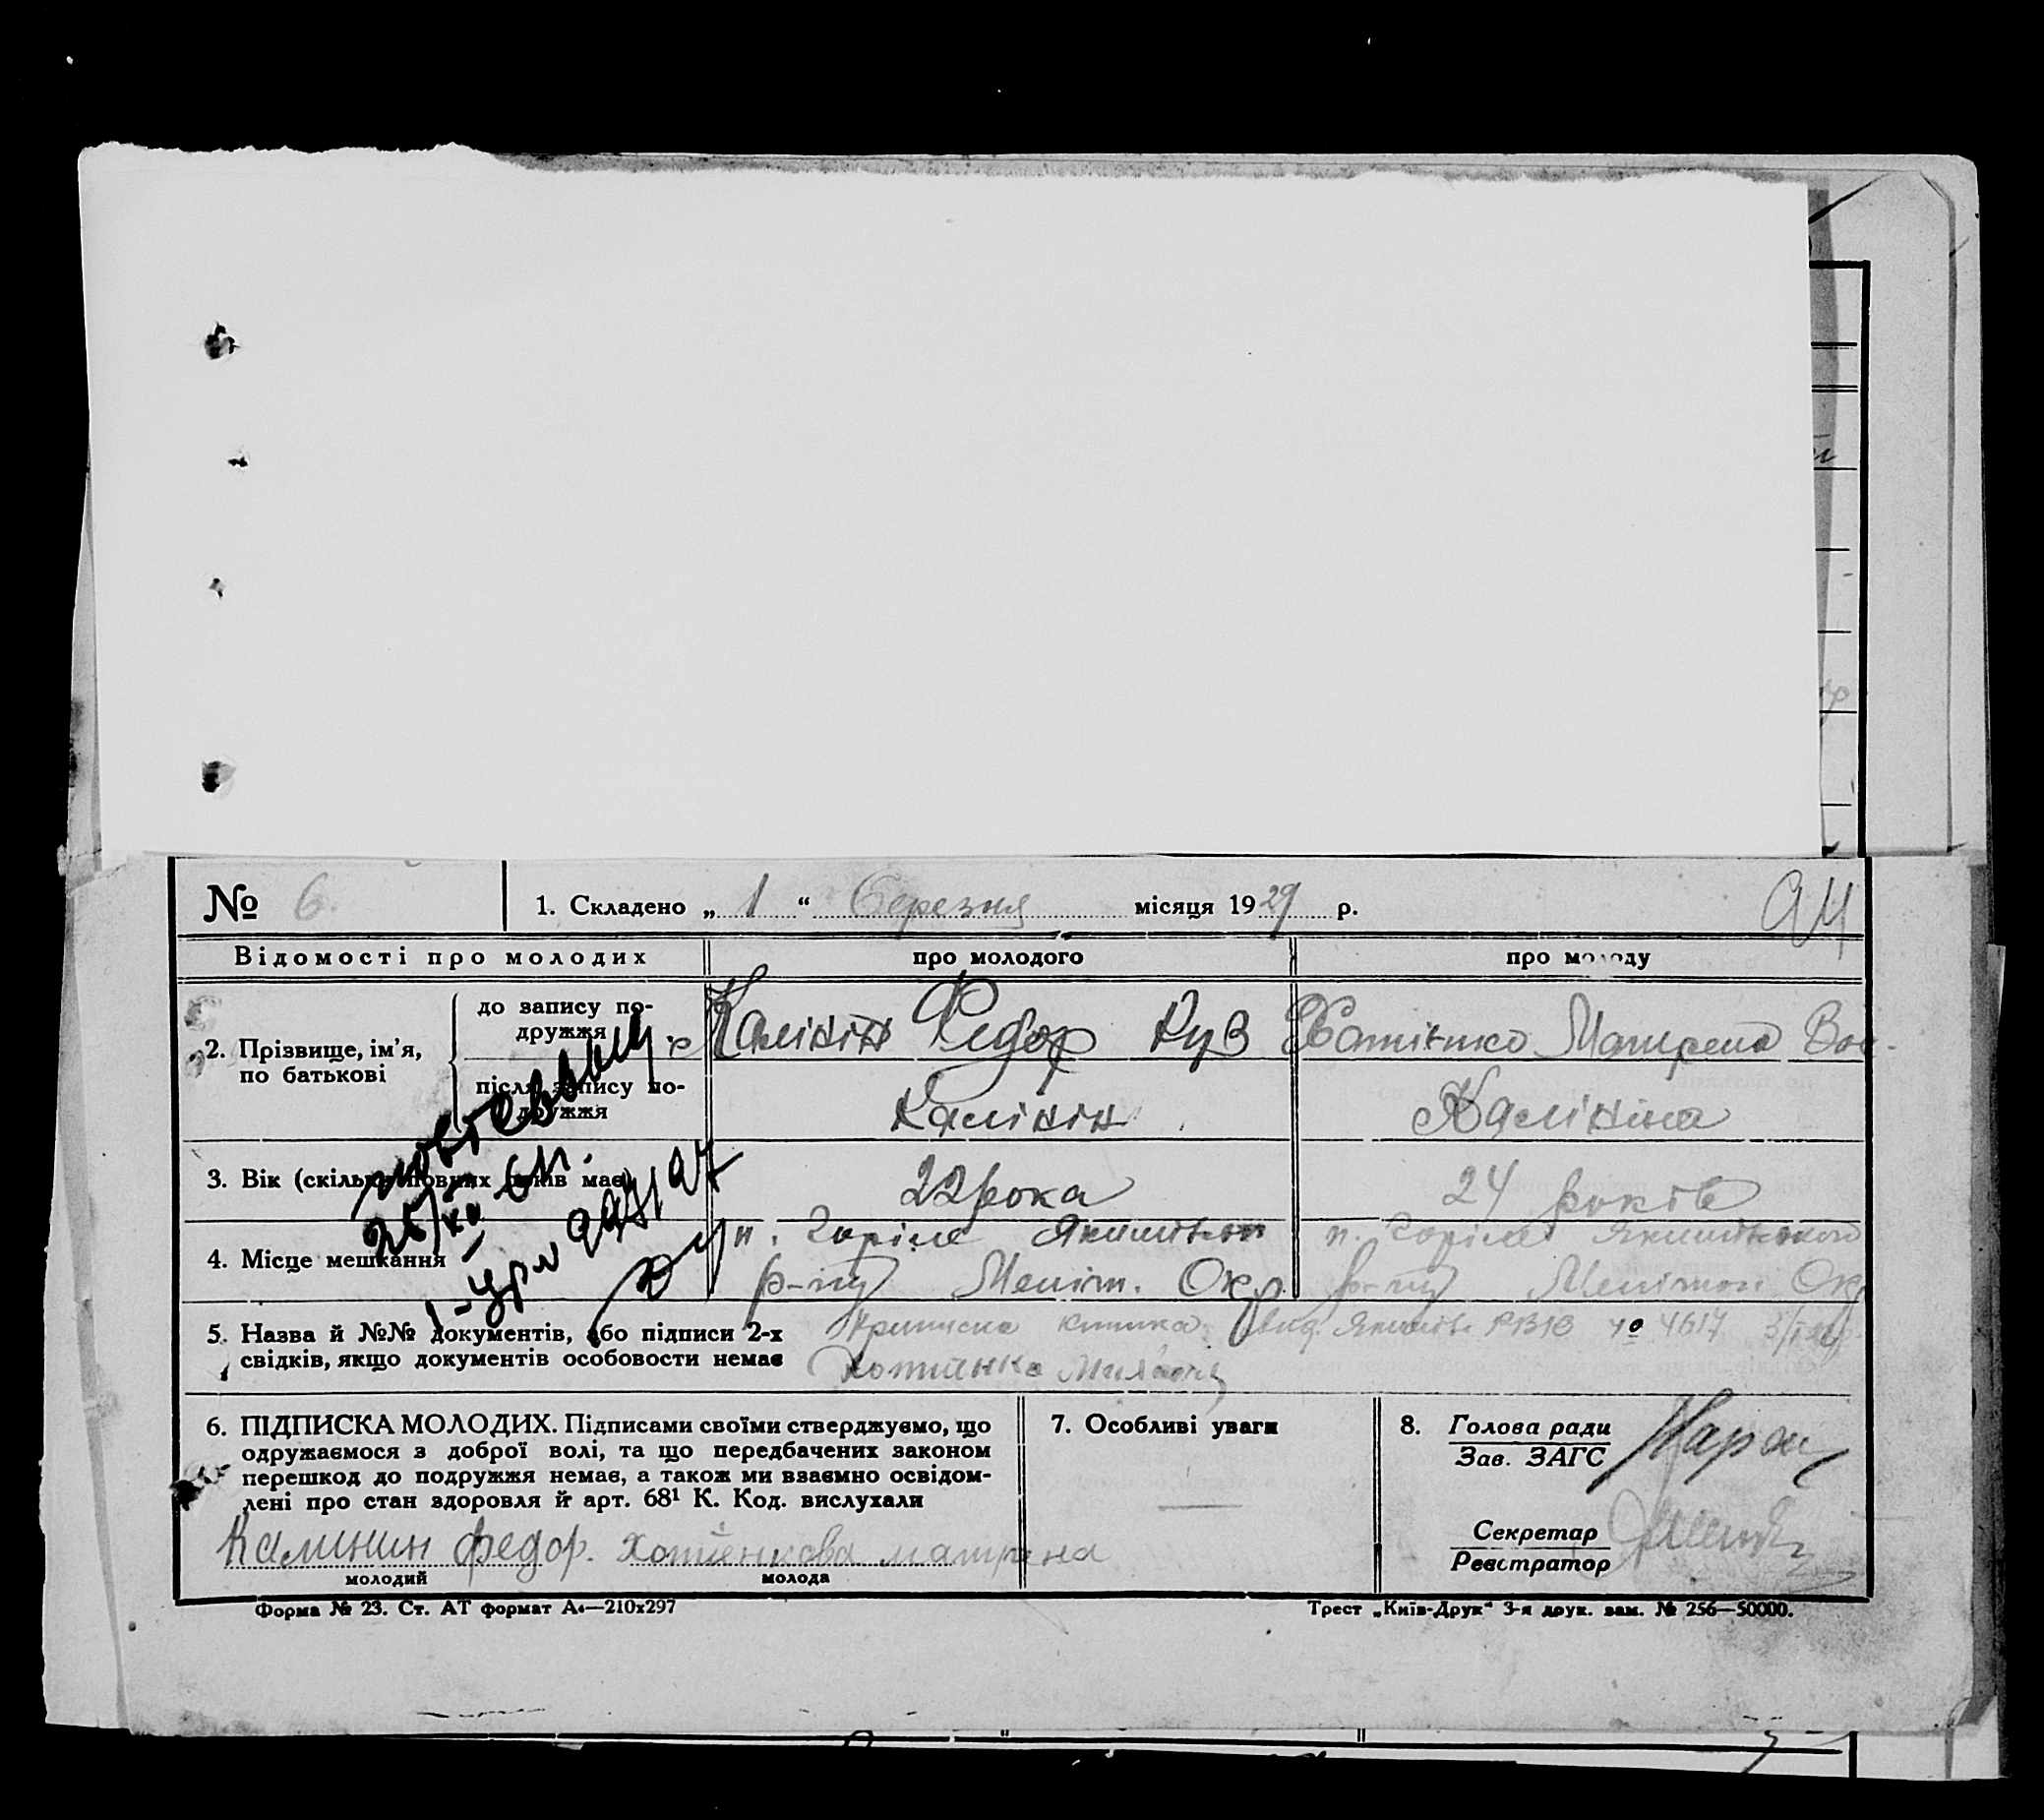 № 6. 1. Складено „ 1 “ березня місяця 1929 р.
Відомості про молодих про молодого про молоду
2. Прізвище, ім’я, по батькові
до запису подружжя
Калінін Федор Куз
Матрена Вас-
після запису подружжя
Калінін
Калініна
3. Вік (скільки повних років має)
22 рока
24 років
4. Місце мешкання
п. Горіле
р-ну Меліт. Окр.
п. Горіле
р-ну Мелітоп Окр
5. Назва й №№ документів, або підписи 2-х
свідків, якщо документів особовости немає
№ 4617
6. ПІДПИСКА МОЛОДИХ. Підписами своїми стверджуємо, що
одружаємося з доброї волі, та що передбачених законом
перешкод до подружжя немає, а також ми взаємно освідом-
лені про стан здоровля й арт. 68¹ К. Код. вислухали
Калинин федор. хотенкова матрена
молодий молода
7. Особливі уваги
8. Голова ради
Зав. ЗАГС
Секретар
Реєстратор
Форма № 23. Ст. АТ формат А4—210х297 Трест „Київ-Друк“ 3-я друк. зам. № 256—50000.